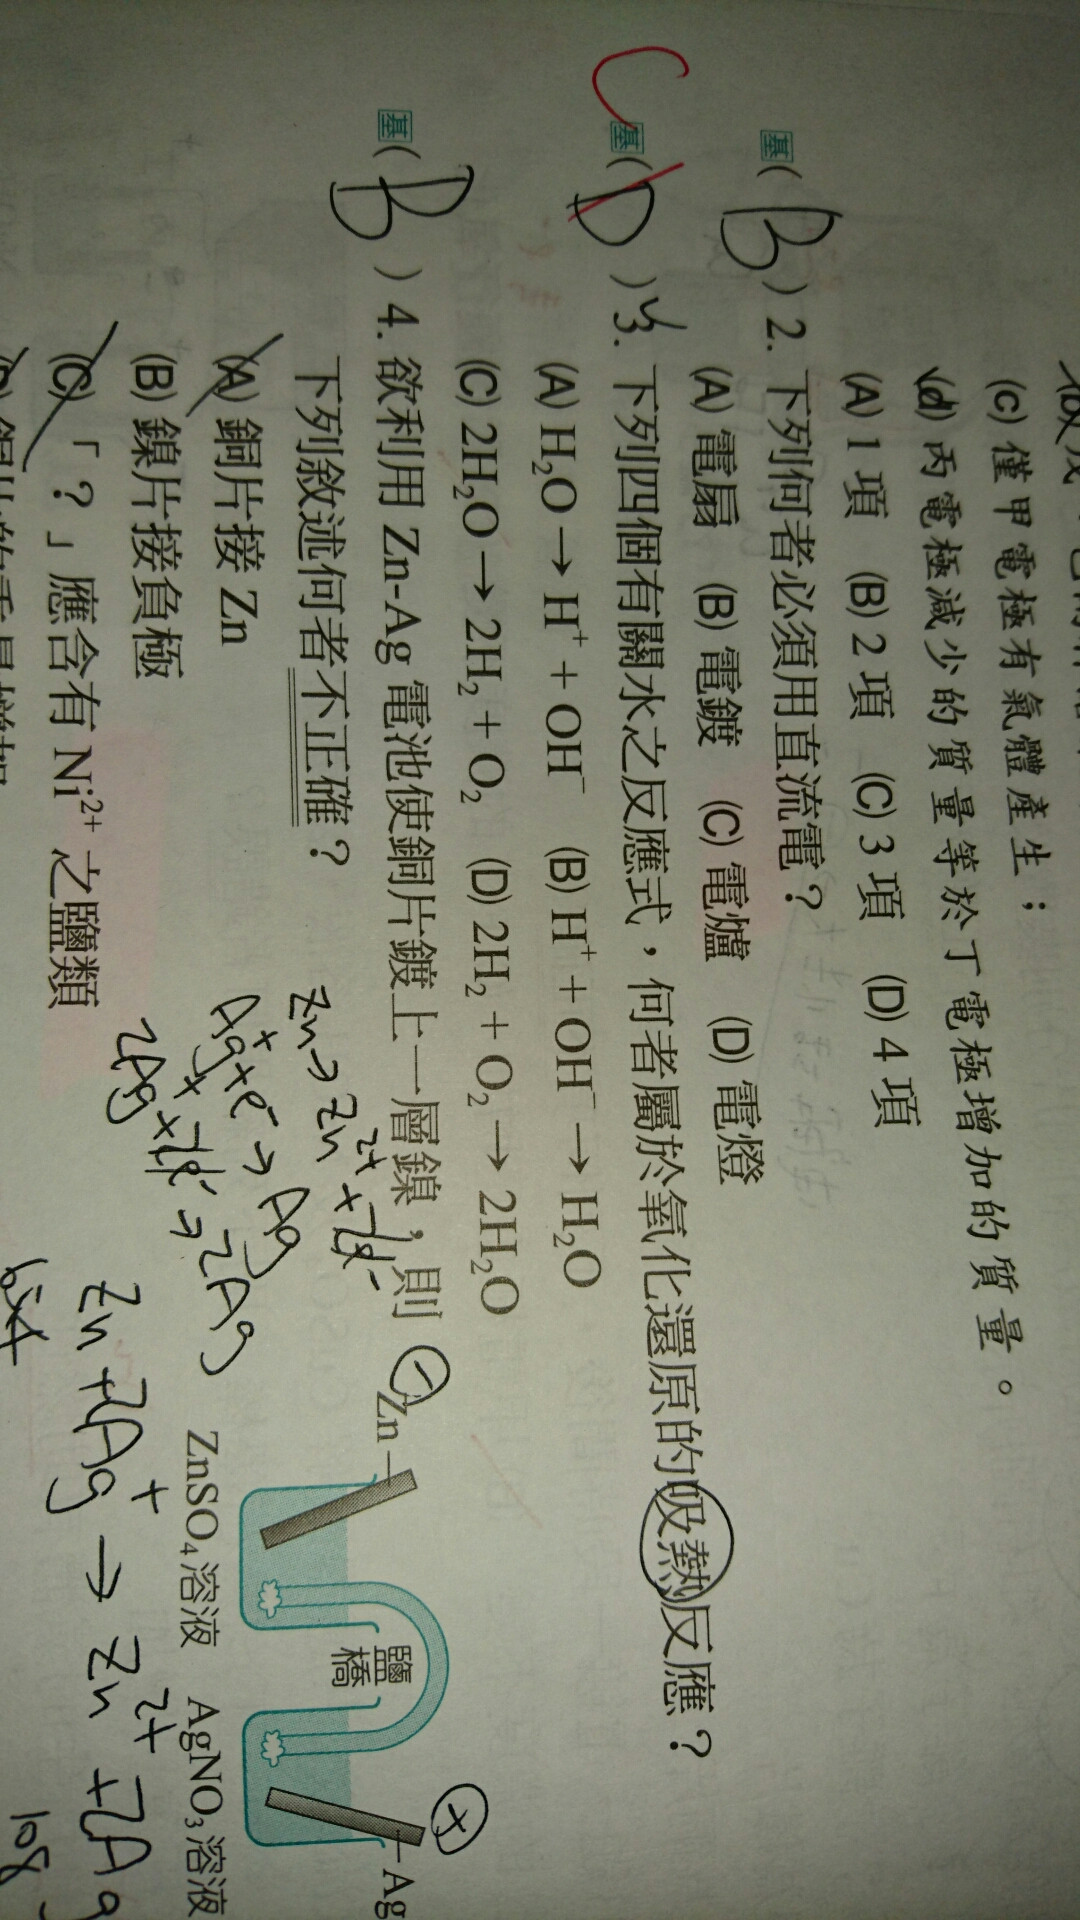 (c) 僅甲電極有氣體產生；
(d) 丙電極減少的質量等於丁電極增加的質量。
(A) 1 項 (B) 2 項 (C) 3 項 (D) 4 項
基 ( B ) 2. 下列何者必須用直流電？
(A) 電扇 (B) 電鍍 (C) 電爐 (D) 電燈
C 基 ( D ) 3. 下列四個有關水之反應式，何者屬於氧化還原的吸熱反應？
(A) H₂O → H⁺ + OH⁻ (B) H⁺ + OH⁻ → H₂O
(C) 2H₂O → 2H₂ + O₂ (D) 2H₂ + O₂ → 2H₂O
基 ( B ) 4. 欲利用 Zn-Ag 電池使銅片鍍上一層鎳，則
下列敘述何者不正確？
(A) 銅片接 Zn
(B) 鎳片接負極
(C)「？」應含有 Ni²⁺ 之鹽類
Zn → Zn²⁺ + 2e⁻
Ag⁺ + e⁻ → Ag
2Ag⁺ + 2e⁻ → 2Ag
Zn + 2Ag⁺ → Zn²⁺ + 2Ag
− Zn
鹽橋
+ Ag
ZnSO₄ 溶液 AgNO₃ 溶液
108